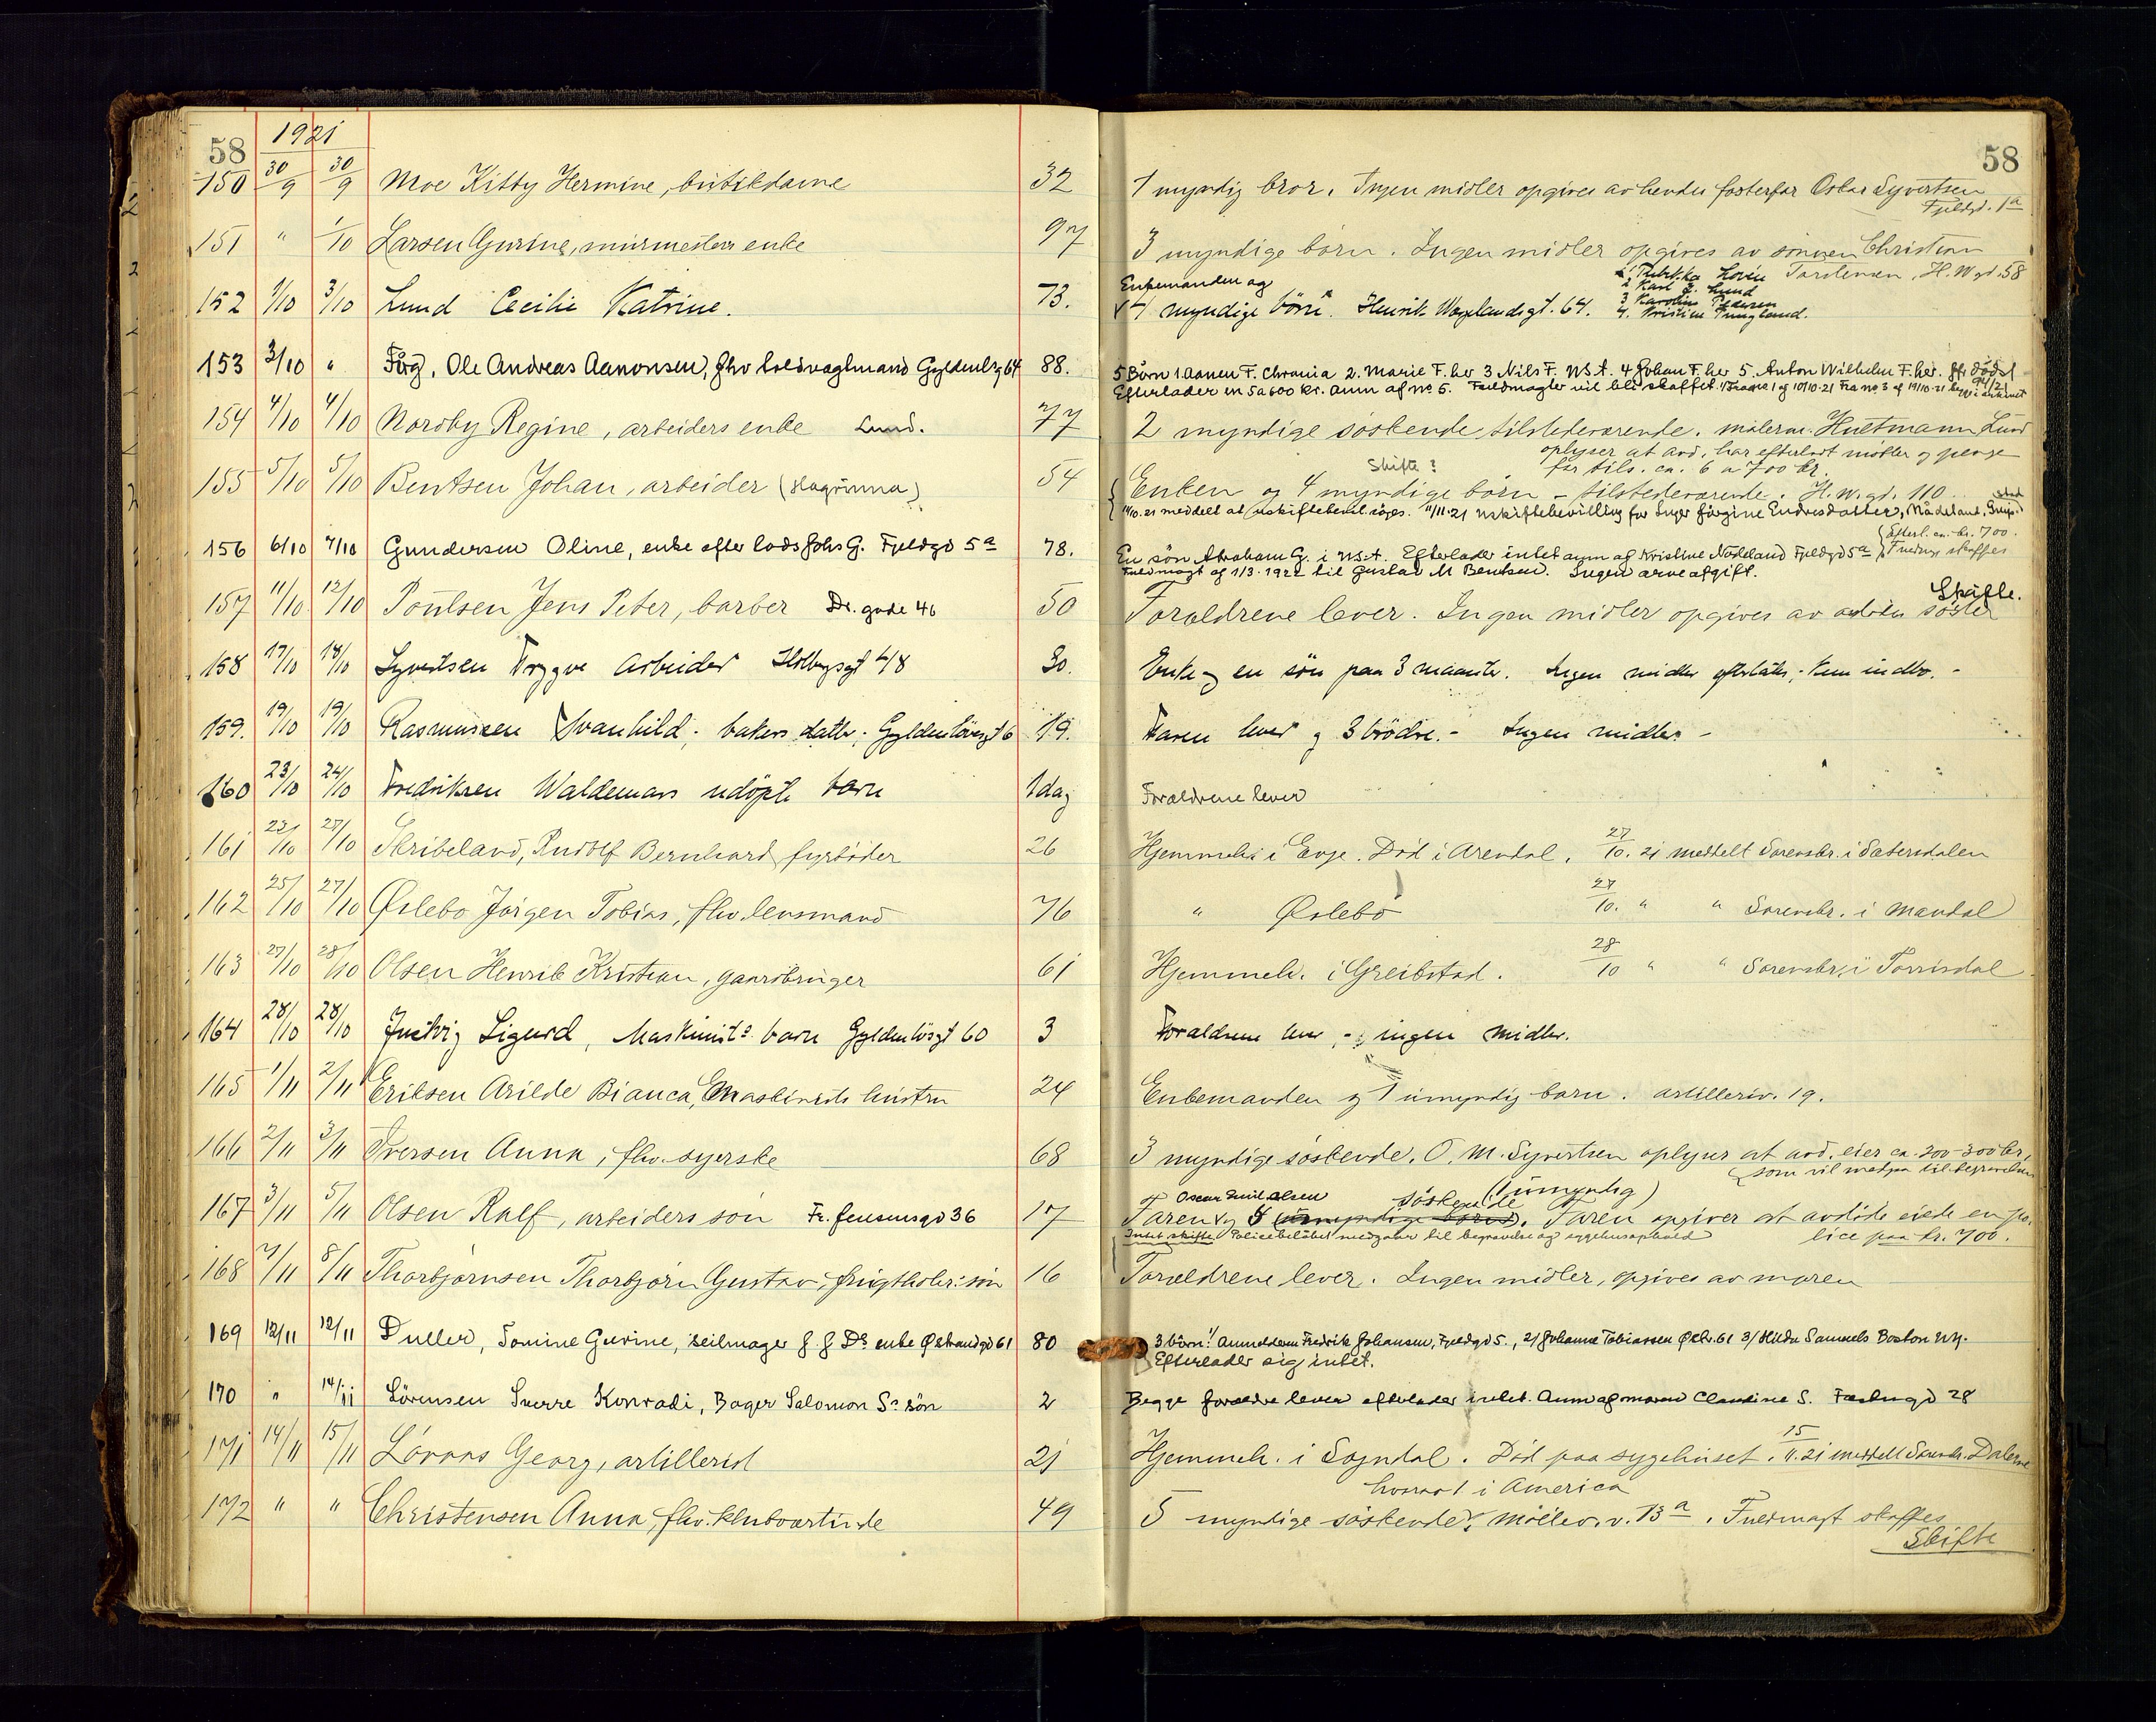 58 1921 58
150 30/9 30/9 Moe Kitty Hermine, butikdame 32 1 myndig bror. Ingen midler opgives av hendes fosterfar Oskar Syvertsen
Fjeldgd. 1a
151 " 1/10 Larsen Gurine, murmesters enke 97 3 myndige børn. Ingen midler opgives av sønnen Christian
Torstensen, H.W.gd. 58
152 1/10 3/10 Lund Cecilie Katrine. 73. Enkemanden og
4 myndige börn. Henrik Wergelandsgt. 64.
2 Karl J. Lund
3 Karoline Pedersen
4. Kristine Tungland.
153 3/10 " Färg, Ole Andreas Aanonsen, fhv Gyldenlg 64 88. 5 Börn 1. Aanen F. Chrania 2. Marie F. her 3 Nils F. USA. 4 Johan F. her 5. Anton Wilhelm F. her.
Efterlader en 5 a 600 kr. anm af no 5. Fuldmagter vil bli skaffet.
154 4/10 4/10 Nordby Regine, arbeiders enke Lund. 77 2 myndige söskende tilstedeværende. malerm. Hultmann Lund
oplyser at avd. har efterladt møbler og penge
før tils. ca. 6 a 700 kr.
155 5/10 5/10 Bentsen Johan, arbeider 54 Skifte?
Enken og 4 myndige børn - tilstedeværende. H.W.gd. 110
14/10.21 meddelt at uskiftebevil. søges. 11/11.21 uskiftebevilling for Inger Jörgine Endresdatter,
156 6/10 7/10 Gundersen Oline, enke efter lods Johs G. Fjeldgd 5a 78. En sön Abraham G. i USA. Efterlader intet anm af Kristine Nödeland Fjeldgd 5a
(Efterl. ca. kr. 700.
Fuldm skaffes
Fuldmagt af 1/3.1922 til Gustav M Bentsen. Ingen arveafgift.
Skifte.
157 11/10 12/10 Poulsen Jens Peter, barber Dr. gade 46 50 Forældrene lever. Ingen midler opgives av søster
158 17/10 18/10 Syvertsen Trygve Arbeider Holbergsgt 4/8 30. Enke og en sön paa 3 maaneder. Ingen midler efterlates, - kun indbo. -
159. 19/10 19/10 Rasmussen Svanhild, - bakers datter, - Gyldenlövesgt 6 19. Faren lever og 3 brödre. - Ingen midler. -
160 23/10 24/10 Fredriksen Waldemars udöpte barn 1 dag Forældrene lever
161 23/10 27/10 Skribeland, Rudolf Bernhard, fyrbøder 26 Hjemmeh. i Evje. Död i Arendal. 27/10.21 meddelt Sorenskr. i Sætersdalen
162 25/10 27/10 Øslebø Jörgen Tobias, fhv. lensmand 76 " Øslebø 27/10. " " Sorenskr. i Mandal
163 27/10 28/10 Olsen Henrik Kristian, gaardbruger 61 Hjemmeh. i Greibstad. 28/10 " " Sorenskr. i Torrisdal
164 28/10 28/10 Justvig Sigurd, Maskinists barn Gyldenlösgt 60 3 Forældrene lever, - ingen midler.
165 1/11 2/11 Eriksen Arilde Bianca, Maskinists hustru 24 Enkemanden og 1 umyndig barn. artilleriv. 19.
166 2/11 3/11 Iversen Anna, fhv. syerske 68 3 myndige söskende. O. M. Syvertsen oplyser at avd. eier ca. 200-300 kr,
som vil medgaa til begravelsen
167 3/11 5/11 Olsen Ralf, arbeiders søn Fr. Jensensgd 36 17 Oscar Emil Olsen söskende (1 umyndig)
Faren og 5 umyndige børn. Faren opgiver at avdøde eiede en po-
lice paa kr. 700.
Intet skifte. Policebelöbet medgaar til begravelse og sygehusophold
168 7/11 8/11 Thorbjørnsen Thorbjørn Gustav, frugthdlr. søn 16 Forældrene lever. Ingen midler, opgives av moren
169 12/11 12/11 Duller, Tomine Gurine, seilmager J. J. Ds enke Ø strandgd 61 80 3 börn: 1/ Anmelderen Fredrik Johansen, Fjeldgd 5., 2/ Johanne Tobiassen Østr. 61 3/ Hilda Samuels Boston NY.
Efterlader sig intet.
170 " 14/11 Sörensen Sverre Konradi, Bager Salomon Ss sön 2 Begge forældre lever efterlader intet. Anm af moren Claudine S. Festningsgd 28
171 14/11 15/11 Lövaas Georg, artillerist 21 Hjemmeh. i Sogndal. Död paa sygehuset. 15/11.21 meddelt Sorenskr. Dalerne
172 " " Christensen Anna, fhv. klubværtinde 49 hvorav 1 i America
5 myndige söskende. Möllev. v. 13a. Fuldmagt skaffes
Skifte